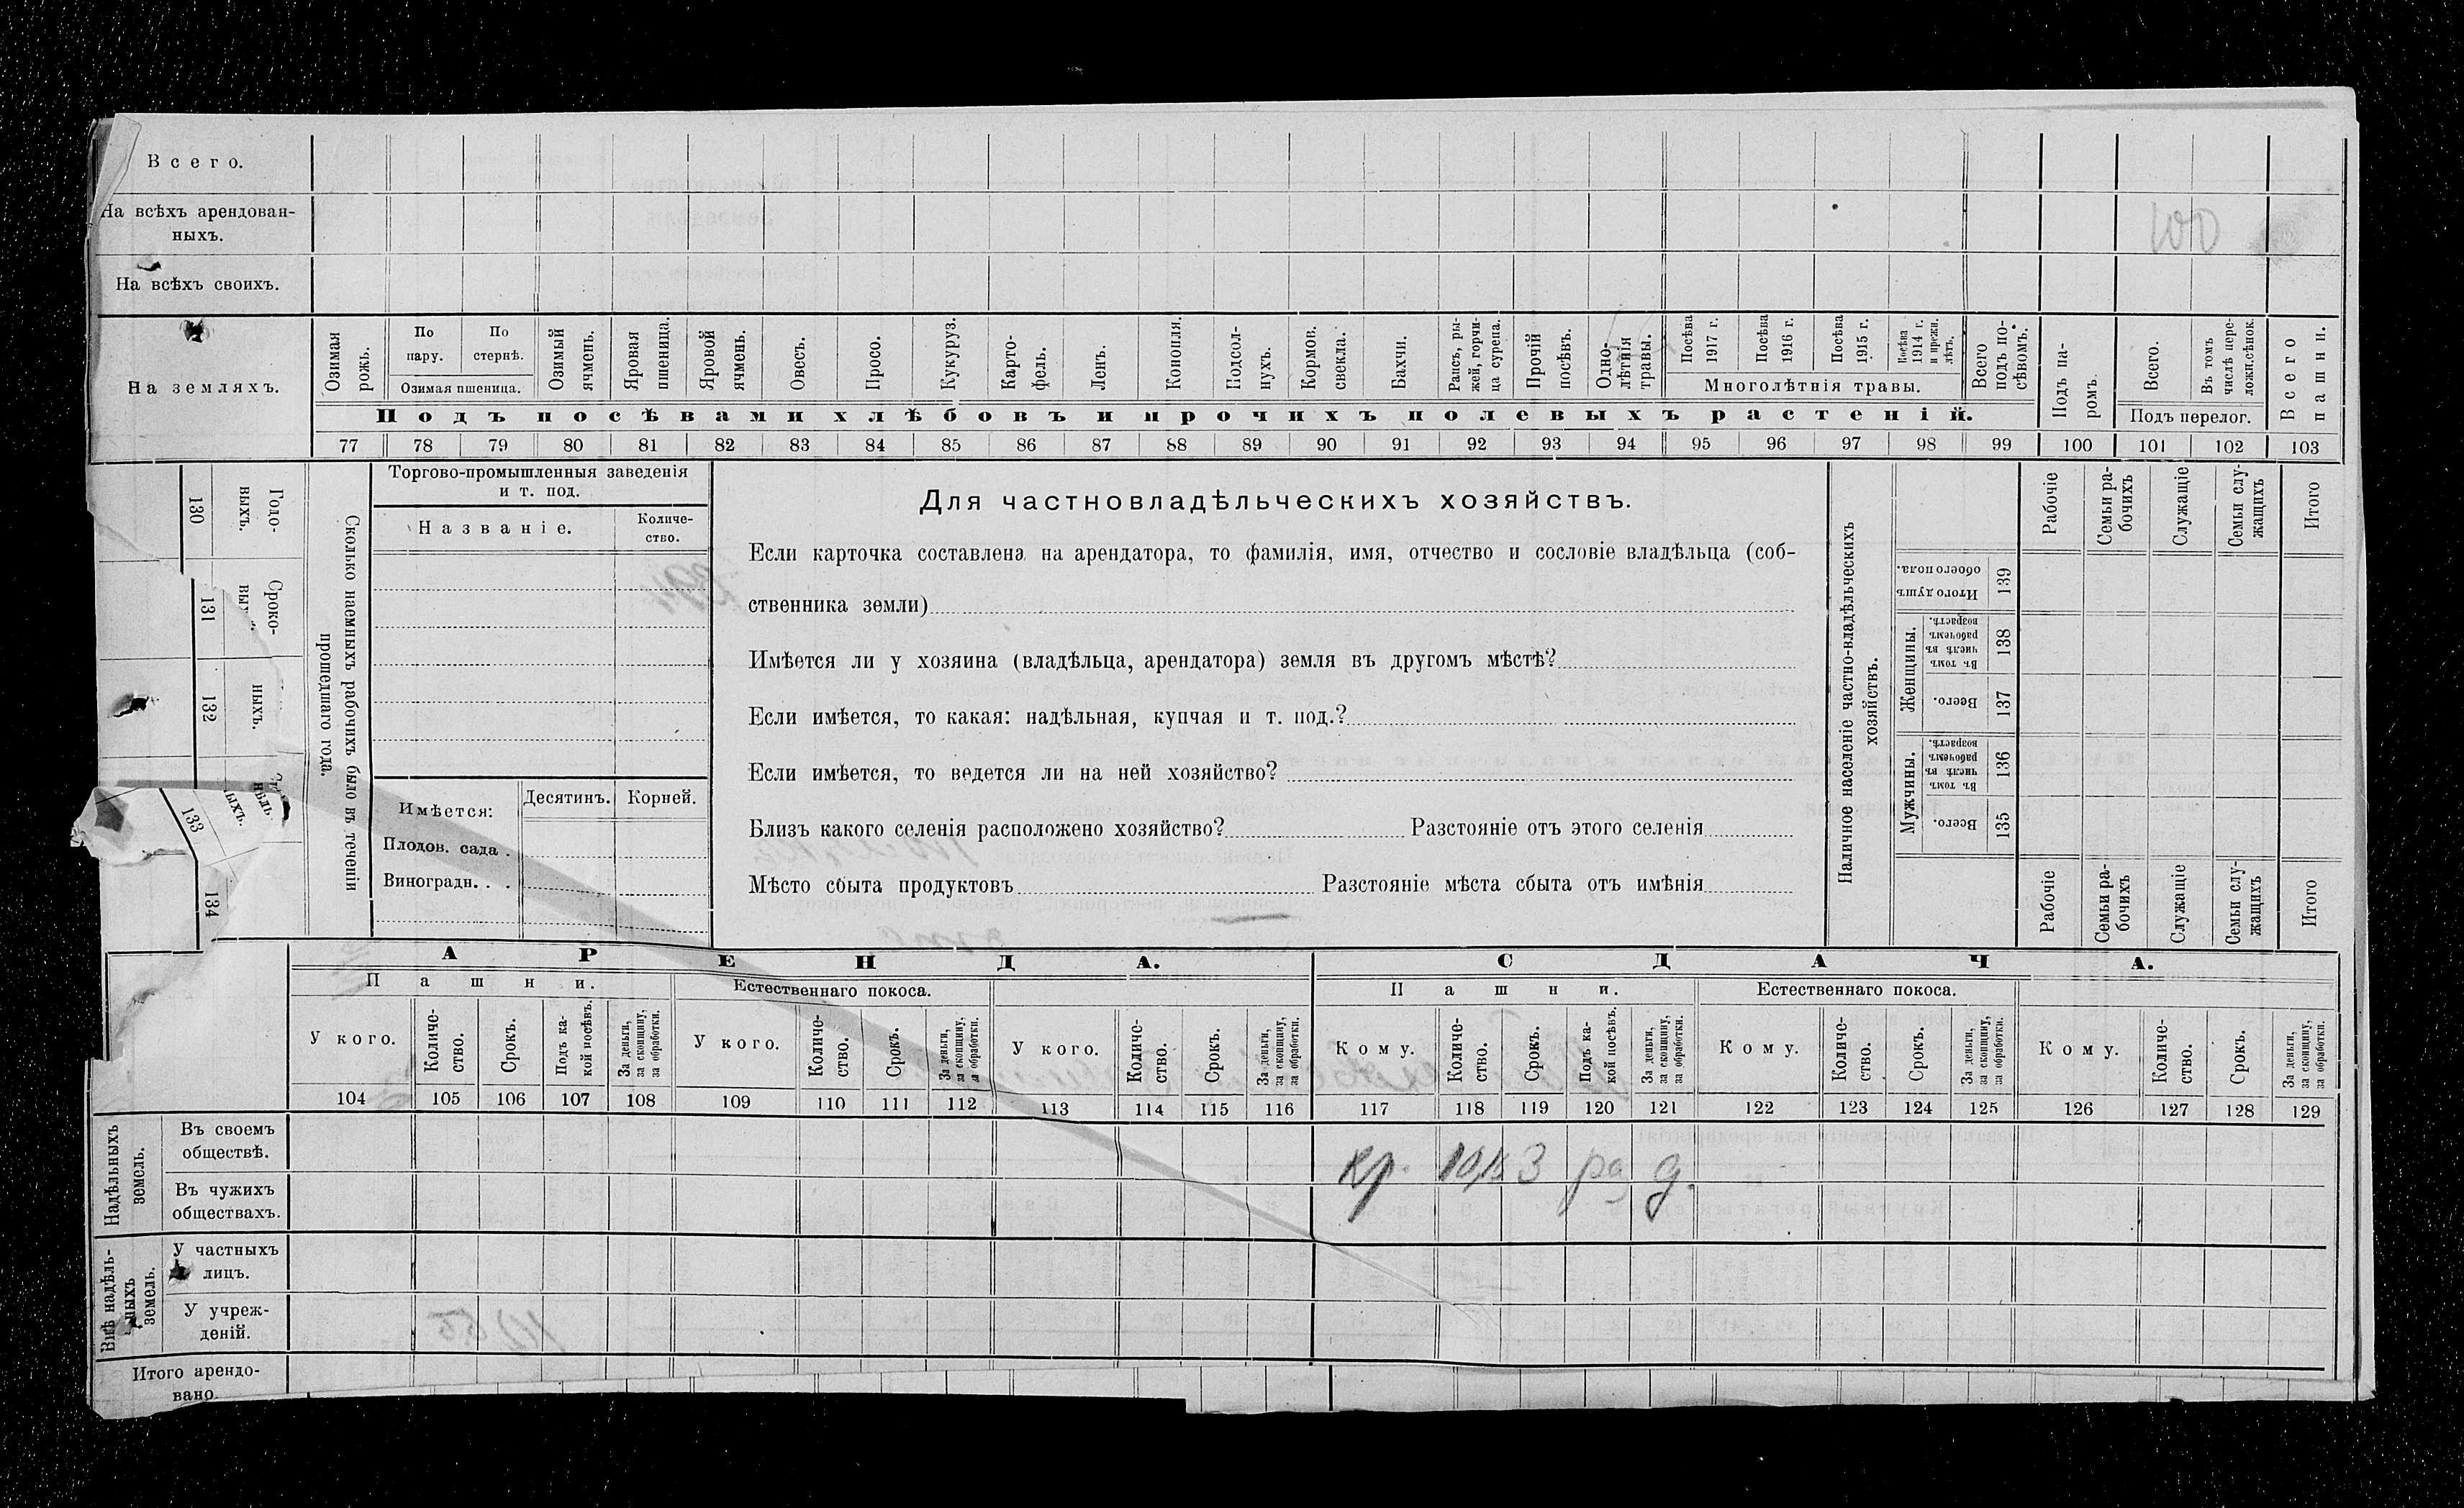 Всего.
На всѣхъ арендован-
ныхъ.
100
На всѣхъ своихъ.
На земляхъ.
Озимая рожь.
По пару.
По стернѣ.
Озимая пшеница.
Озимый ячмень.
Яровая пшеница.
Яровой ячмень.
Овесъ.
Просо.
Кукуруз.
Карто-
фель.
Ленъ.
Конопля.
Подсол-
нухъ.
Кормов.
свекла.
Бахчи.
Рапсъ, ры-
жей, горчи-
ца сурепа.
Прочій
посѣвъ.
Одно-
лѣтнія
травы.
Посѣва
1917 г.
Посѣва
1916 г.
Посѣва
1915 г.
Посѣва
1914 г.
и прежн.
лѣтъ.
Многолѣтнія травы.
Всего
подъ по-
сѣвомъ.
Подъ па-
ромъ.
Всего.
Въ томъ
числѣ пере-
ложн.сѣнок.
Подъ перелог.
Всего
пашни.
Подъ посѣвами хлѣбовъ и прочихъ полевыхъ растеній.
77 78 79 80 81 82 83 84 85 86 87 88 89 90 91 92 93 94 95 96 97 98 99 100 101 102 103
Сколько наемныхъ рабочихъ было въ теченіи
прошедшаго года.
Годо-
выхъ.
130
Сроко-
131
ныхъ.
132
133
134
Торгово-промышленныя заведенія
и т. под.
Названіе.
Количе-
ство.
Имѣется:
Десятинъ.
Корней.
Плодов. сада .
Виноградн. . .
Для частновладѣльческихъ хозяйствъ.
Если карточка составлена на арендатора, то фамилія, имя, отчество и сословіе владѣльца (соб-
ственника земли)
Имѣется ли у хозяина (владѣльца, арендатора) земля въ другомъ мѣстѣ?
Если имѣется, то какая: надѣльная, купчая и т. под.?
Если имѣется, то ведется ли на ней хозяйство?
Близъ какого селенія расположено хозяйство? Разстояніе отъ этого селенія
Мѣсто сбыта продуктовъ Разстояніе мѣста сбыта отъ имѣнія
Наличное населеніе частно-владѣльческихъ
хозяйствъ.
Рабочіе
Семьи ра-
бочихъ
Служащіе
Семьи слу-
жащихъ
Итого
Итого душъ
обоего пола.
139
Женщины.
Въ томъ
числѣ въ
рабочемъ
возрастѣ.
138
Всего.
137
Мужчины.
Въ томъ
числѣ въ
рабочемъ
возрастѣ.
136
Всего.
135
Рабочіе
Семьи ра-
бочихъ
Служащіе
Семьи слу-
жащихъ
Итого
АРЕНДА.
СДАЧА.
Пашни.
Естественнаго покоса.
Пашни.
Естественнаго покоса.
У кого.
Количе-
ство.
Срокъ.
Подъ ка-
кой посѣвъ.
За деньги,
за скопщину,
за обработки.
У кого.
Количе-
ство.
Срокъ.
За деньги,
за скопщину,
за обработки.
У кого.
Количе-
ство.
Срокъ.
За деньги,
за скопщину,
за обработки.
Кому.
Количе-
ство.
Срокъ.
Подъ ка-
кой посѣвъ.
За деньги,
за скопщину,
за обработки.
Кому.
Количе-
ство.
Срокъ.
За деньги,
за скопщину,
за обработки.
Кому.
Количе-
ство.
Срокъ.
За деньги,
за скопщину,
за обработки.
104 105 106 107 108 109 110 111 112 113 114 115 116 117 118 119 120 121 122 123 124 125 126 127 128 129
Надѣльныхъ
земель.
Въ своемъ
обществѣ.
кр. 3 д.
Въ чужихъ
обществахъ.
Внѣ надѣль-
ныхъ
земель.
У частныхъ
лицъ.
У учреж-
деній.
Итого арендо-
вано.